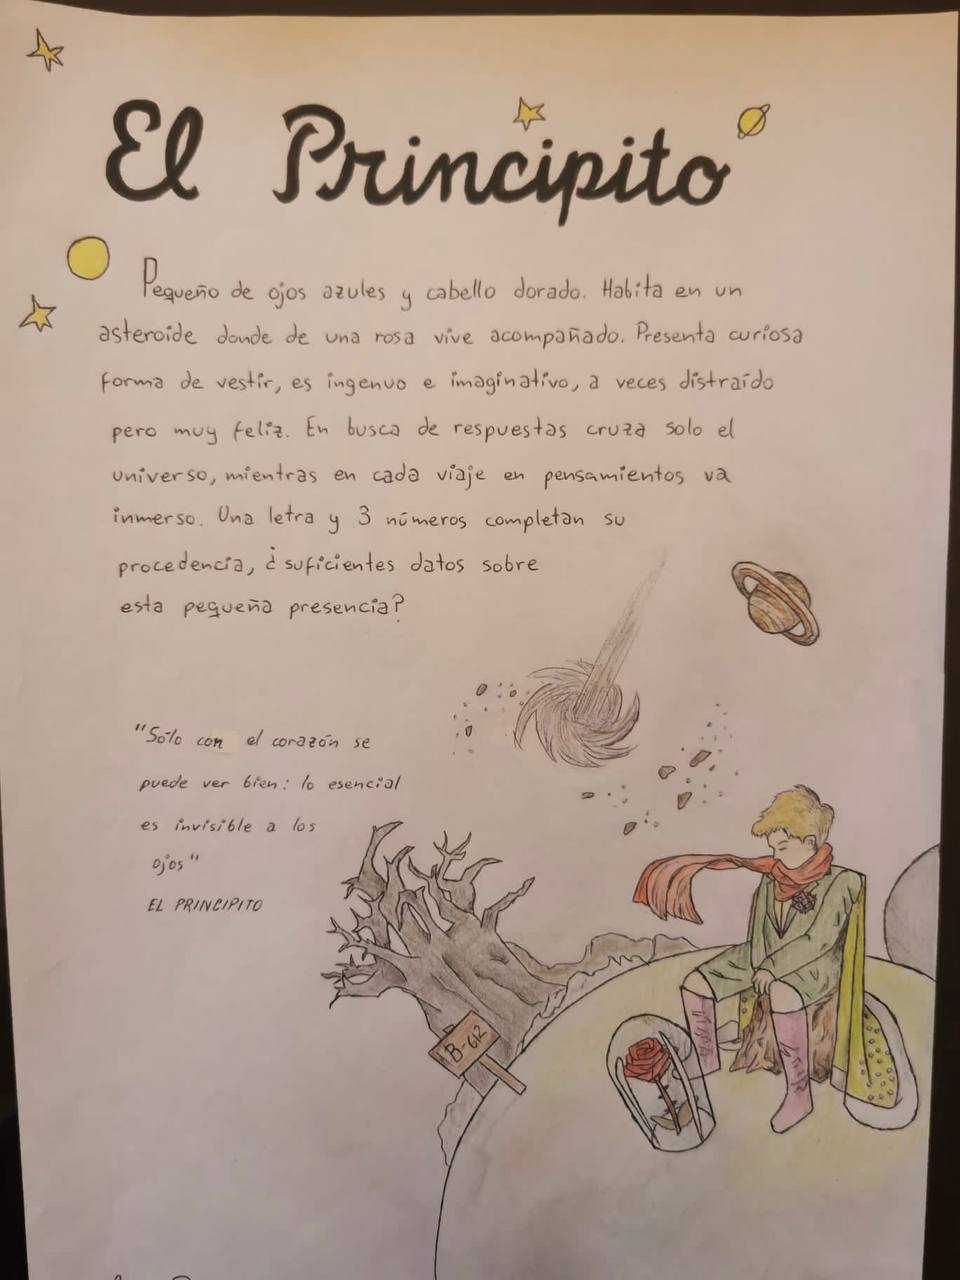 El Principito
Pequeño de ojos azules y cabello dorado. Habita en un
asteroide donde de una rosa vive acompañado. Presenta curiosa
forma de vestir, es ingenuo e imaginativo, a veces distraído
pero muy feliz. En busca de respuestas cruza solo el
universo, mientras en cada viaje en pensamientos va
inmerso. Una letra y 3 números completan su
procedencia, ¿suficientes datos sobre
esta pequeña presencia?
"Sólo con el corazón se
puede ver bien: lo esencial
es invisible a los
ojos"
EL PRINCIPITO
B-612